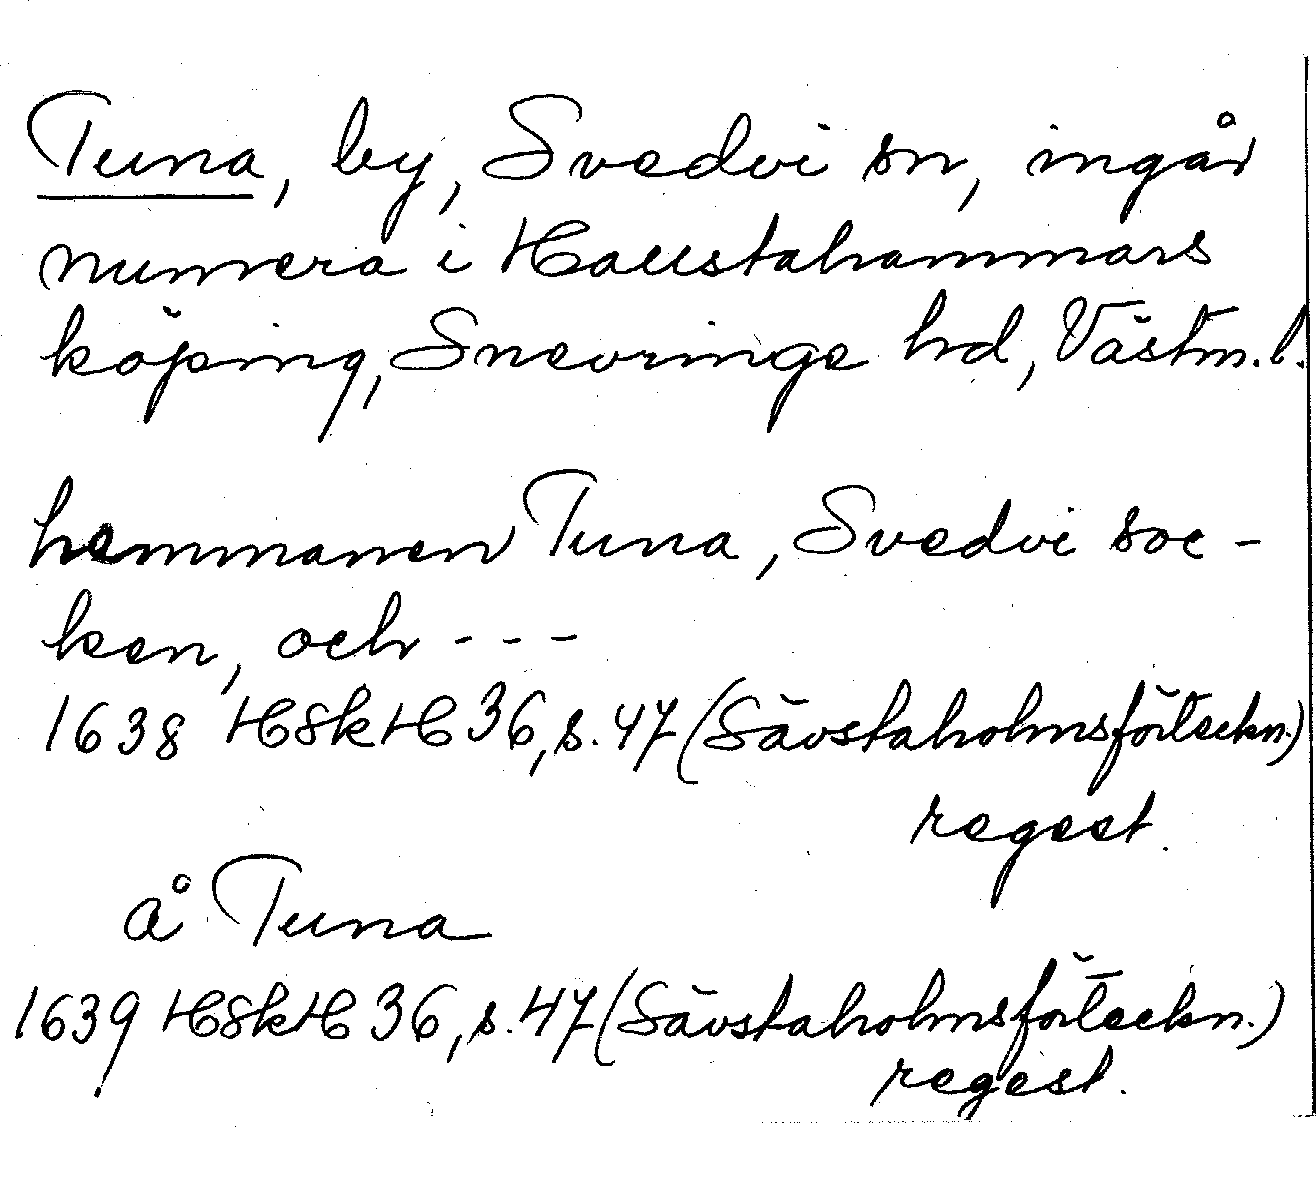 Tuna, by, Svedvi sn, ingår
numera i Hallstahammars
köping, Snevringe hd, Västm.l.
hemmanen Tuna, Svedvi soc-
ken, och ---
1638 HSkH 36, s. 47 (Sävstaholmsförteckn.)
regest.
å Tuna
1639 HSkH 36, s. 47 (Sävstaholmsförteckn.)
regest.